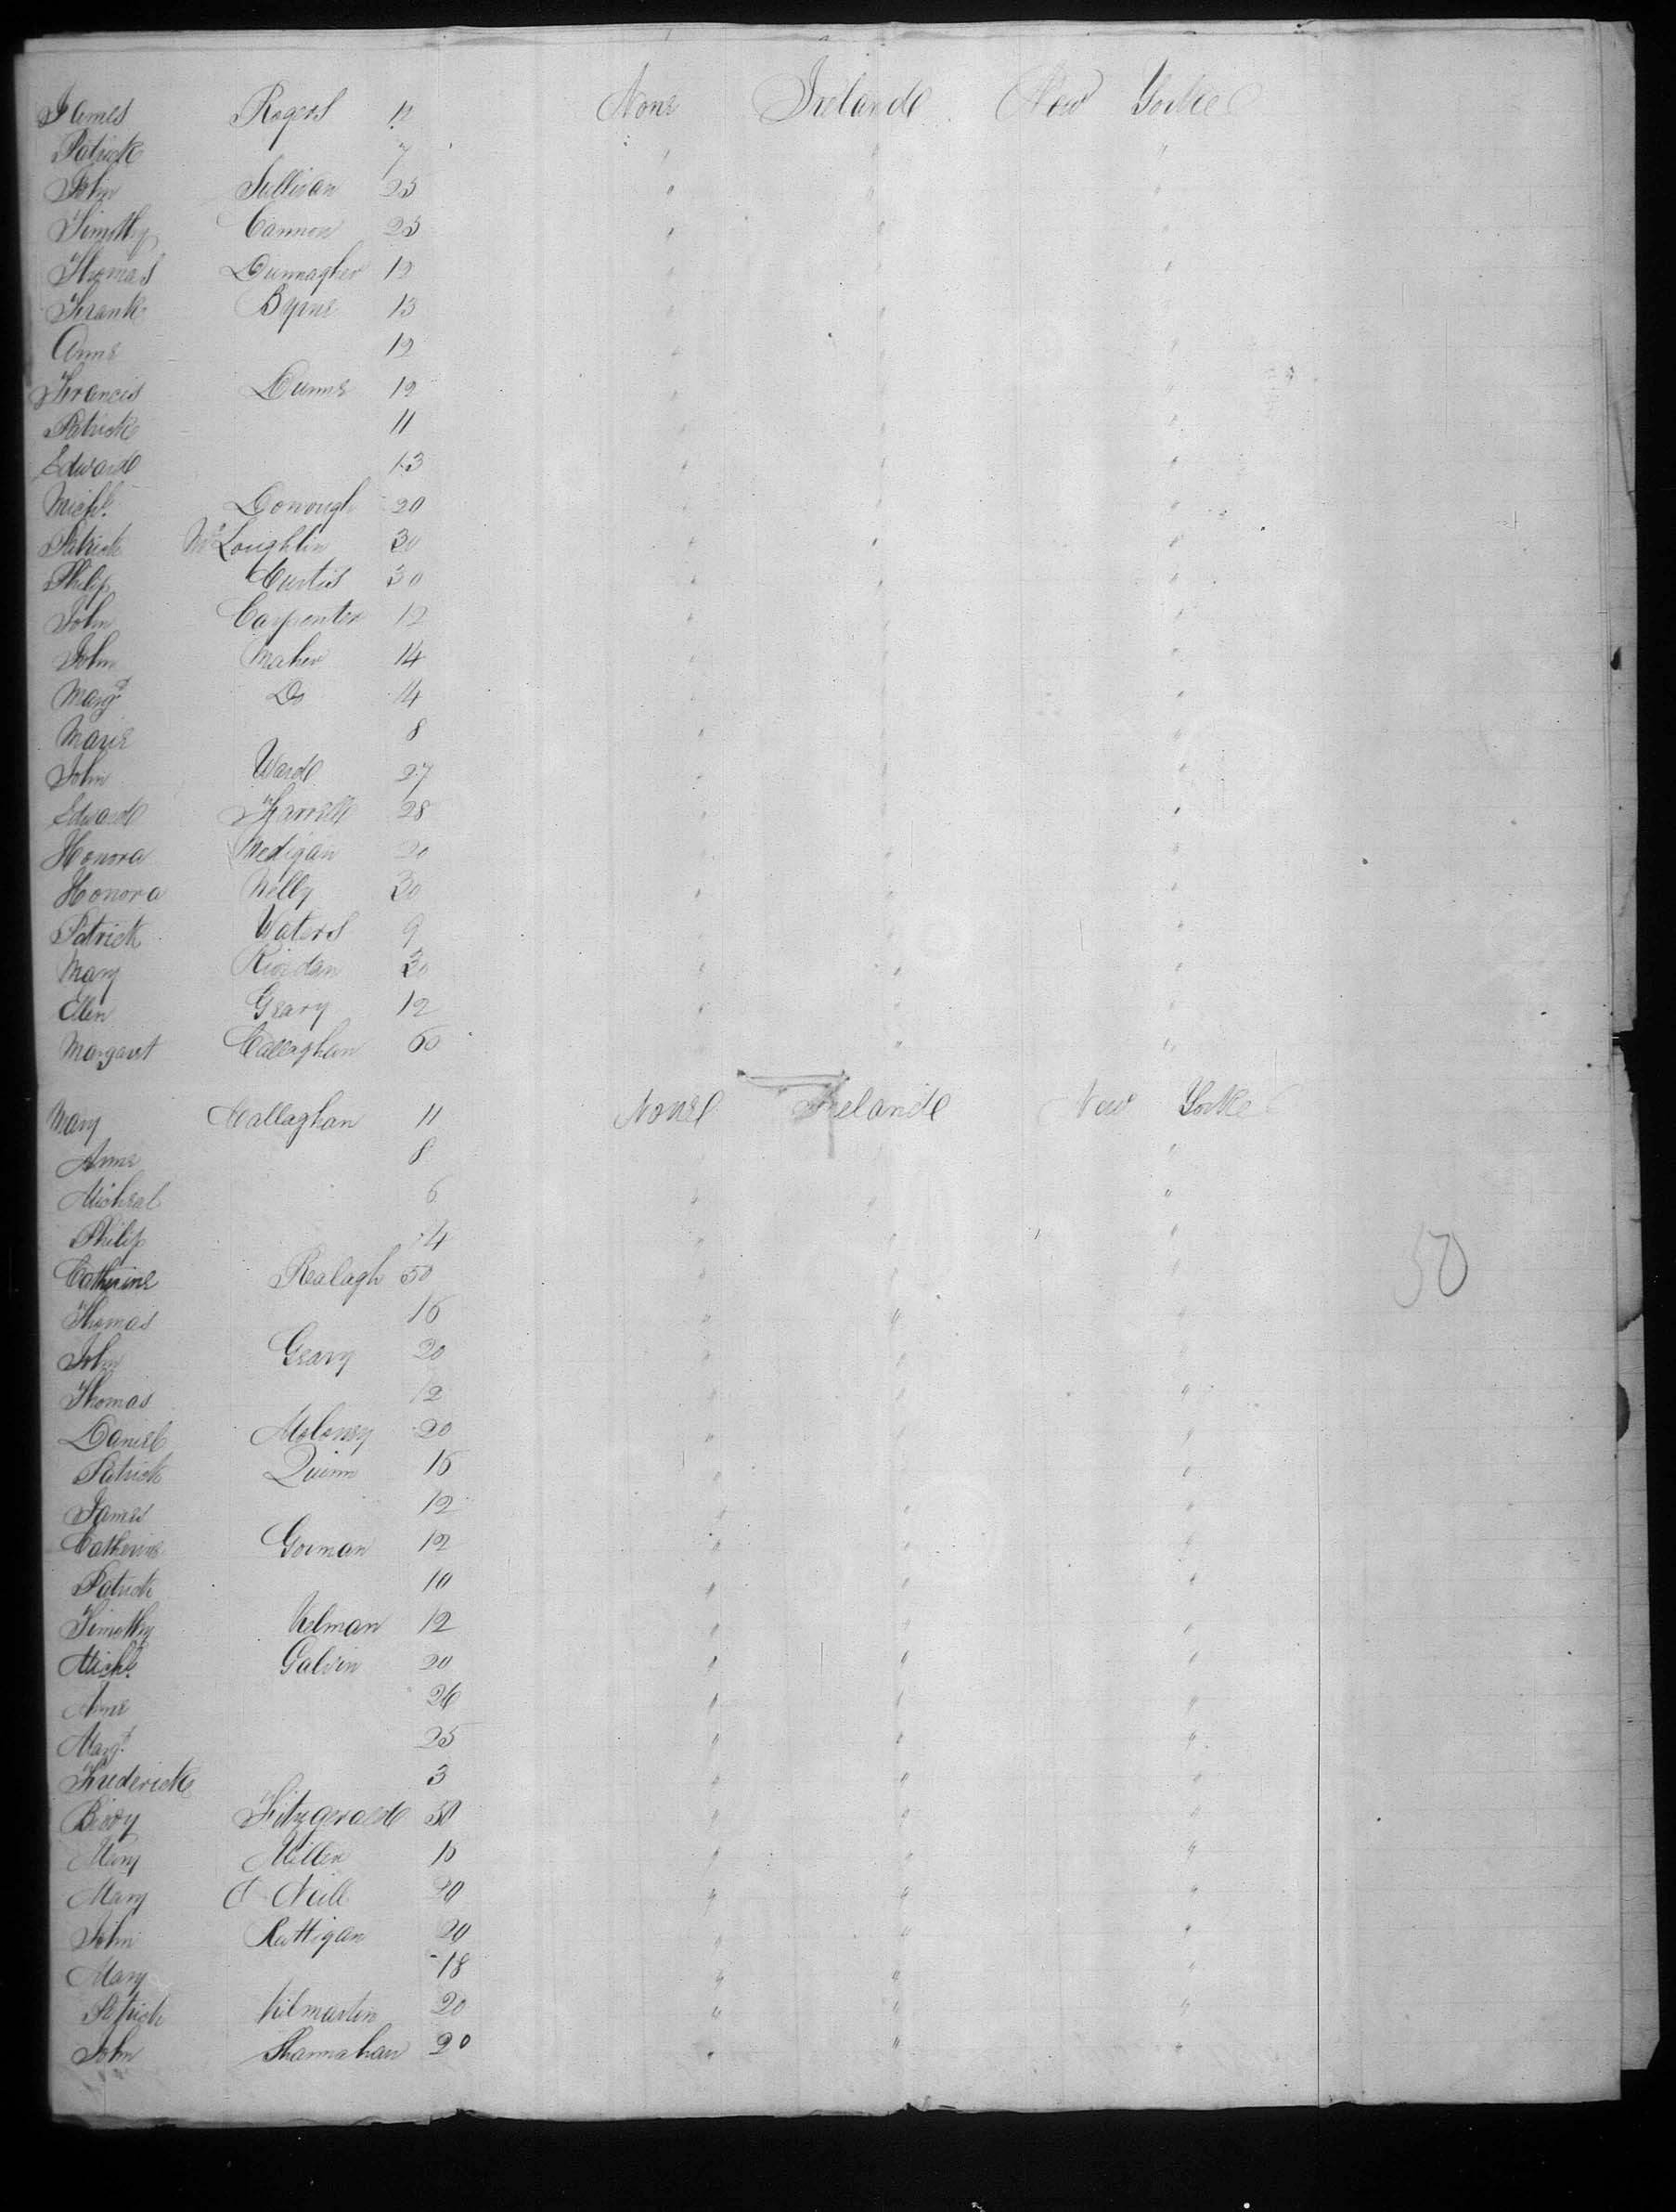 James Rogers 12 None Ireland New York
Patrick 7 " " "
John Sullivan 25 " " "
Timothy Cannon 25 " " "
Thomas Dunnagher 12 " " "
Frank Byrne 13 " " "
Anne 12 " " "
Francis Dunne 12 " " "
Patrick 11 " " "
Edward 13 " " "
Michl. Donough 20 " " "
Patrick McLoughlin 30 " " "
Philip Curtis 30 " " "
John Carpenter 12 " " "
John Maher 14 " " "
Margt. Do 14 " " "
Marie 8 " " "
John Ward 27 " " "
Edward Farrell 28 " " "
Honora Medigan 20 " " "
Honora Kelly 30 " " "
Patrick Waters 9 " " "
Mary Riordan 30 " " "
Ellen Geary 12 " " "
Margaret Callaghan 60 " " "
Mary Callaghan 11 None Ireland New York
Anne 8 " " "
Micheal 6 " " "
Philip 4 " " "
Catherine Realagh 50 " " "
50
Thomas 16 " " "
John Geary 20 " " "
Thomas 12 " " "
Daniel Moloney 20 " " "
Patrick Quinn 16 " " "
James 12 " " "
Catherine Gorman 12 " " "
Patrick 10 " " "
Timothy 12 " " "
Michl. Galvin 20 " " "
Anne 26 " " "
Margt. 25 " " "
Frederick 3 " " "
Biddy Fitzgerald 50 " " "
Mary Miller " " "
Mary O Neill 20 " " "
John Rattigan 20 " " "
Mary 18 " " "
Patrick Kilmartin 20 " " "
John Shannahan 20 " " "